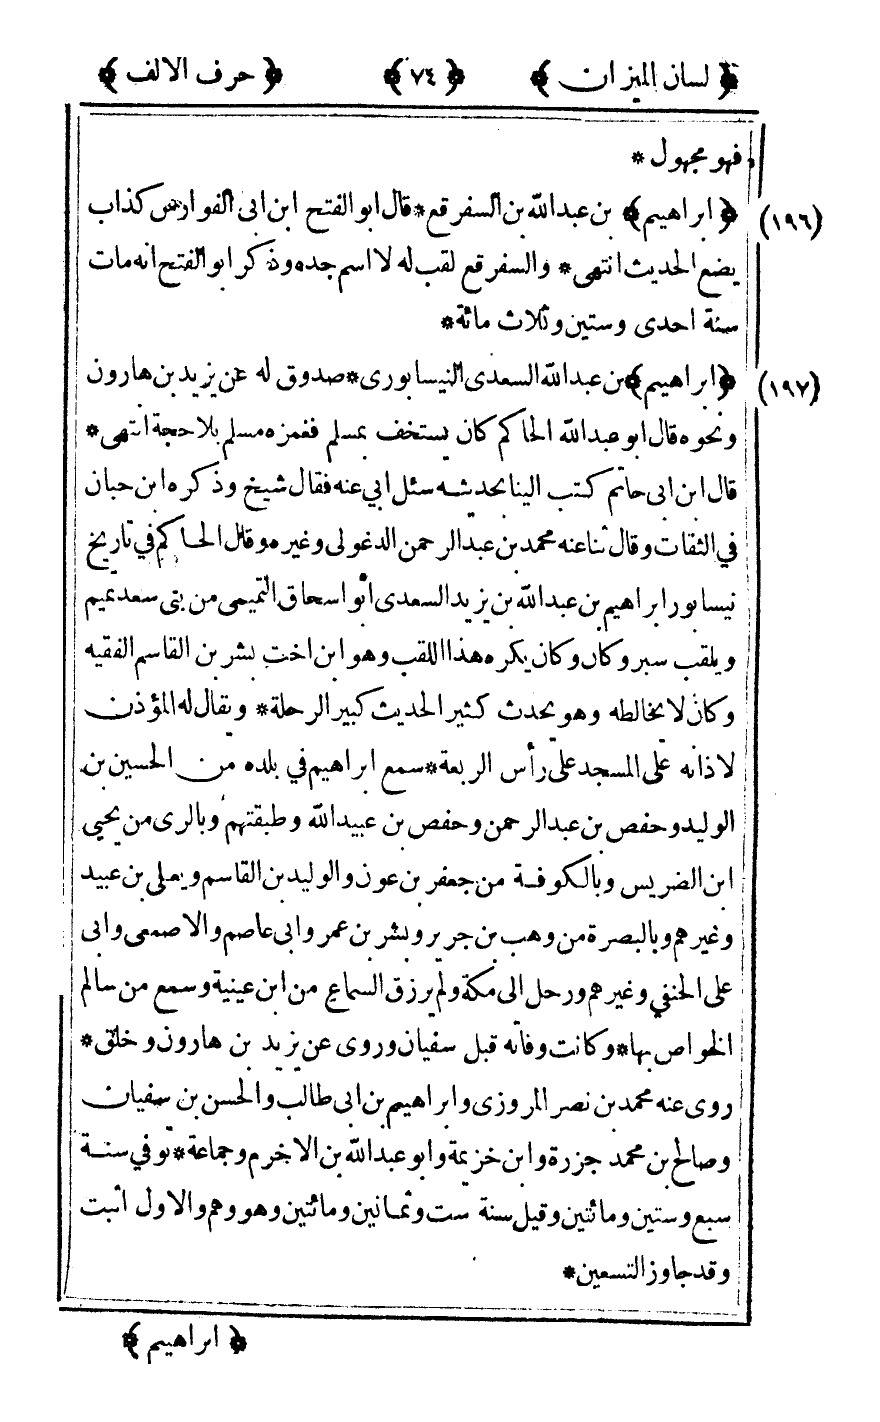 ﴿ لسان الميزان ﴾ ﴿ ٧٤ ﴾ ﴿ حرف الالف ﴾
فهو مجهول *
(١٩٦) ﴿ ابراهيم ﴾ بن عبدالله بن السفرقع * قال ابو الفتح ابن ابى الفوارس كذاب
يضع الحديث انتهى * والسفرقع لقب له لا اسم جده وذكر ابو الفتح انه مات
سنة احدى وستين وثلاث مائة *
(١٩٧) ﴿ ابراهيم ﴾ بن عبدالله السعدى النيسابورى * صدوق له عن يزيد بن هارون
ونحوه قال ابو عبدالله الحاكم كان يستخف بمسلم فغمزه مسلم بلاحجة انتهى *
قال ابن ابى حاتم كتب الينا بحديثه سئل ابي عنه فقال شيخ وذكره ابن حبان
في الثقات وقال ثنا عنه محمد بن عبدالرحمن الدغولى وغيره وقال الحاكم في تاريخ
نيسابور ابراهيم بن عبدالله بن يزيد السعدى ابو اسحاق التميمى من بنى سعد تميم
ويلقب سبر وكان وكان يكره هذا اللقب وهو ابن اخت بشر بن القاسم الفقيه
وكان لا يخالطه وهو يحدث كثير الحديث كبير الرحلة * ويقال له المؤذن
لاذانه على المسجد على رأس الربعة * سمع ابراهيم في بلده من الحسين بن
الوليد وحفص بن عبدالرحمن وحفص بن عبيدالله وطبقتهم وبالرى من يحيى
ابن الضريس وبالكوفة من جعفر بن عون والوليد بن القاسم ويعلى بن عبيد
وغيرهم وبالبصرة من وهب بن جرير وبشر بن عمر وابى عاصم والاصمعى وابى
على الحنفي وغيرهم ورحل الى مكة ولم يرزق السماع من ابن عيينة وسمع من سالم
الخواص بها * وكانت وفاته قبل سفيان وروى عن يزيد بن هارون وخلق *
روى عنه محمد بن نصر المروزى وابراهيم بن ابى طالب والحسن بن سفيان
وصالح بن محمد جزرة وابن خزيمة وابو عبدالله بن الاخرم وجماعة * توفي سنة
سبع وستين ومائتين وقيل سنة ست وثمانين ومائتين وهو وهم والاول اثبت
وقد جاوز التسعين *
﴿ ابراهيم ﴾